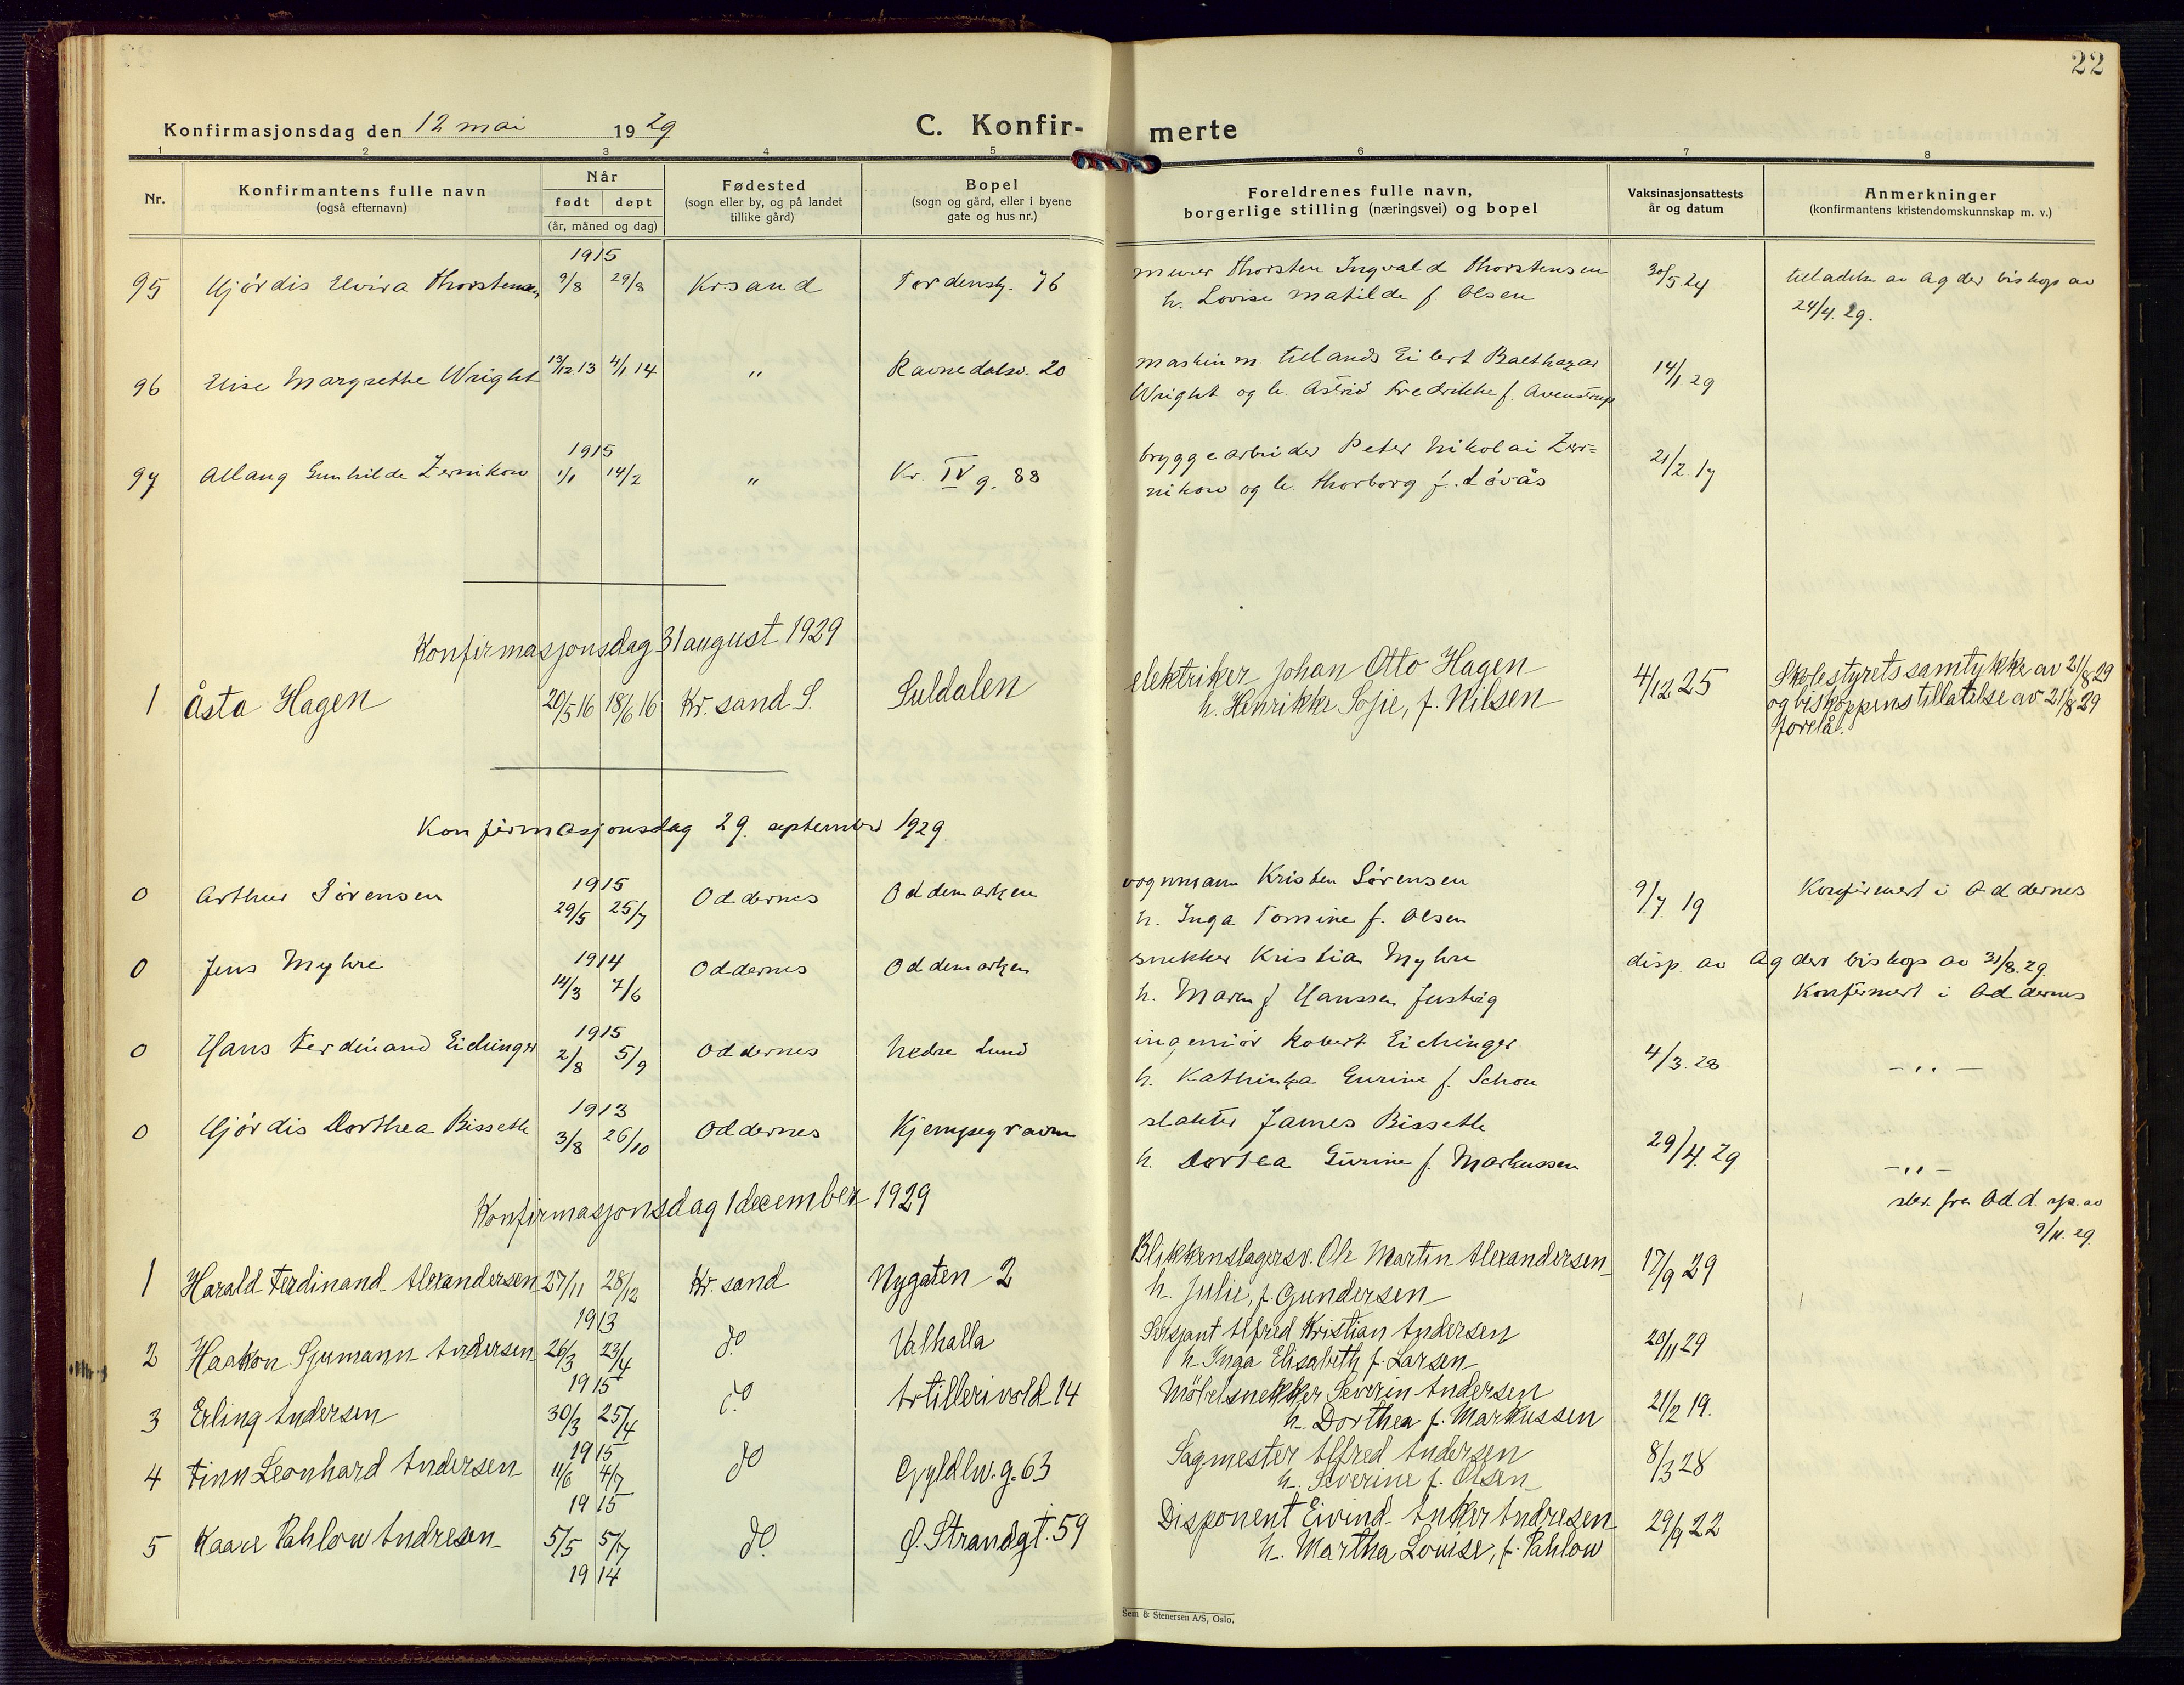 22
Konfirmasjonsdag den 12 mai 1929
C. Konfir- merte
1 2 3 4 5 6 7 8
Nr.
Konfirmantens fulle navn
(også efternavn)
Når
født døpt
(år, måned og dag)
Fødested
(sogn eller by, og på landet
tillike gård)
Bopel
(sogn og gård, eller i byene
gate og hus nr.)
Foreldrenes fulle navn,
borgerlige stilling (næringsvei) og bopel
Vaksinasjonsattests
år og datum
Anmerkninger
(konfirmantens kristendomskunnskap m. v.)
1915
95 Hjördis Elvira Thorstensen 9/8 29/8 Krsand Tordenskj. 76 murer Thorsten Ingvald Thorstensen 30/5 24 tilladelse av Agder biskop av
h. Lovise Matilde f. Olsen 24/4. 29.
96 Elise Margrethe Wright 13/12 13 4/1 14 " Ravnedalsv. 20 maskinm. tillands Eilert Balthazar 14/1. 29
Wright og h. Astrid Fredrikke f. Avenstrup
1915
97 Allaug Gunhilde Zernikow 1/1 14/2 " Kr. IV g. 88 bryggearbeider Peter Nikolai Zer=
nikow og h. Thorborg f. Lövås 21/2 17
Konfirmasjonsdag 31 august 1929
1 Åsta Hagen 20/5 16 18/6 16 Kr.sand S. Suldalen elektriker Johan Otto Hagen 4/12 25 Skolestyrets samtykke av 21/8 29
h. Henrikke Sofie, f. Nilsen og biskoppens tillatelse av 21/8 29
forelå.
Konfirmasjonsdag 29. september 1929.
1915
0 Arthur Sörensen 29/5 25/7 Oddernes Oddemarken vognmann Kristen Sörensen 9/7. 19 Konfirmert i Oddernes
h. Inga Tomine f. Olsen
1914
0 Jens Myhre 14/3 7/6 Oddernes Oddemarken snekker Kristian Myhre disp. av Agder biskop av 31/8. 29.
h. Maren f Hanssen Justvig Konfirmert i Oddernes
1915
0 Hans Ferdinand Eichinger 2/8 5/9 Oddernes Nedre Lund ingeniör Robert Eichinger 4/3. 28 - " -
h. Kathinka Gurine f. Schou
1913
0 Hjördis Dorthea Bisseth 3/8 26/10 Oddernes Kjempegraven slakter James Bisseth
h. Dortea Gurine f. Markussen 29/4. 29 - " -
skr. fra Odd. sp. av
9/11. 29
Konfirmasjonsdag 1 december 1929
1 Harald Ferdinand Alexandersen 27/11 28/12 Kr.sand Nygaten 2 Blikkenslagersv. Ole Martin Alexandersen 17/9 29
1913 h. Julie, f. Gundersen
2 Haakon Sjumann Andersen 26/3 23/4 do Valhalla Sersjant Alfred Kristian Andersen 20/11 29
1915 h. Inga Elisabeth f. Larsen
3 Erling Andersen 30/3 25/4 do Artillerivold 14 Möbelsnekker Severin Andersen 21/2 19.
1915 h. Dorthea f. Markussen
4 Finn Leonhard Andersen 11/6 4/7 do Gyldlv. g. 63 Sagmester Alfred Andersen 8/3 28
1915 h. Severine f. Olsen
5 Kaare Pahlow Andresen 5/5 5/7 do Ø. Strandgt. 59 Disponent Eivind Anker Andresen 29/9 22
1914 h. Martha Louise, f. Pahlow
Sem & Stenersen A/S, Oslo.